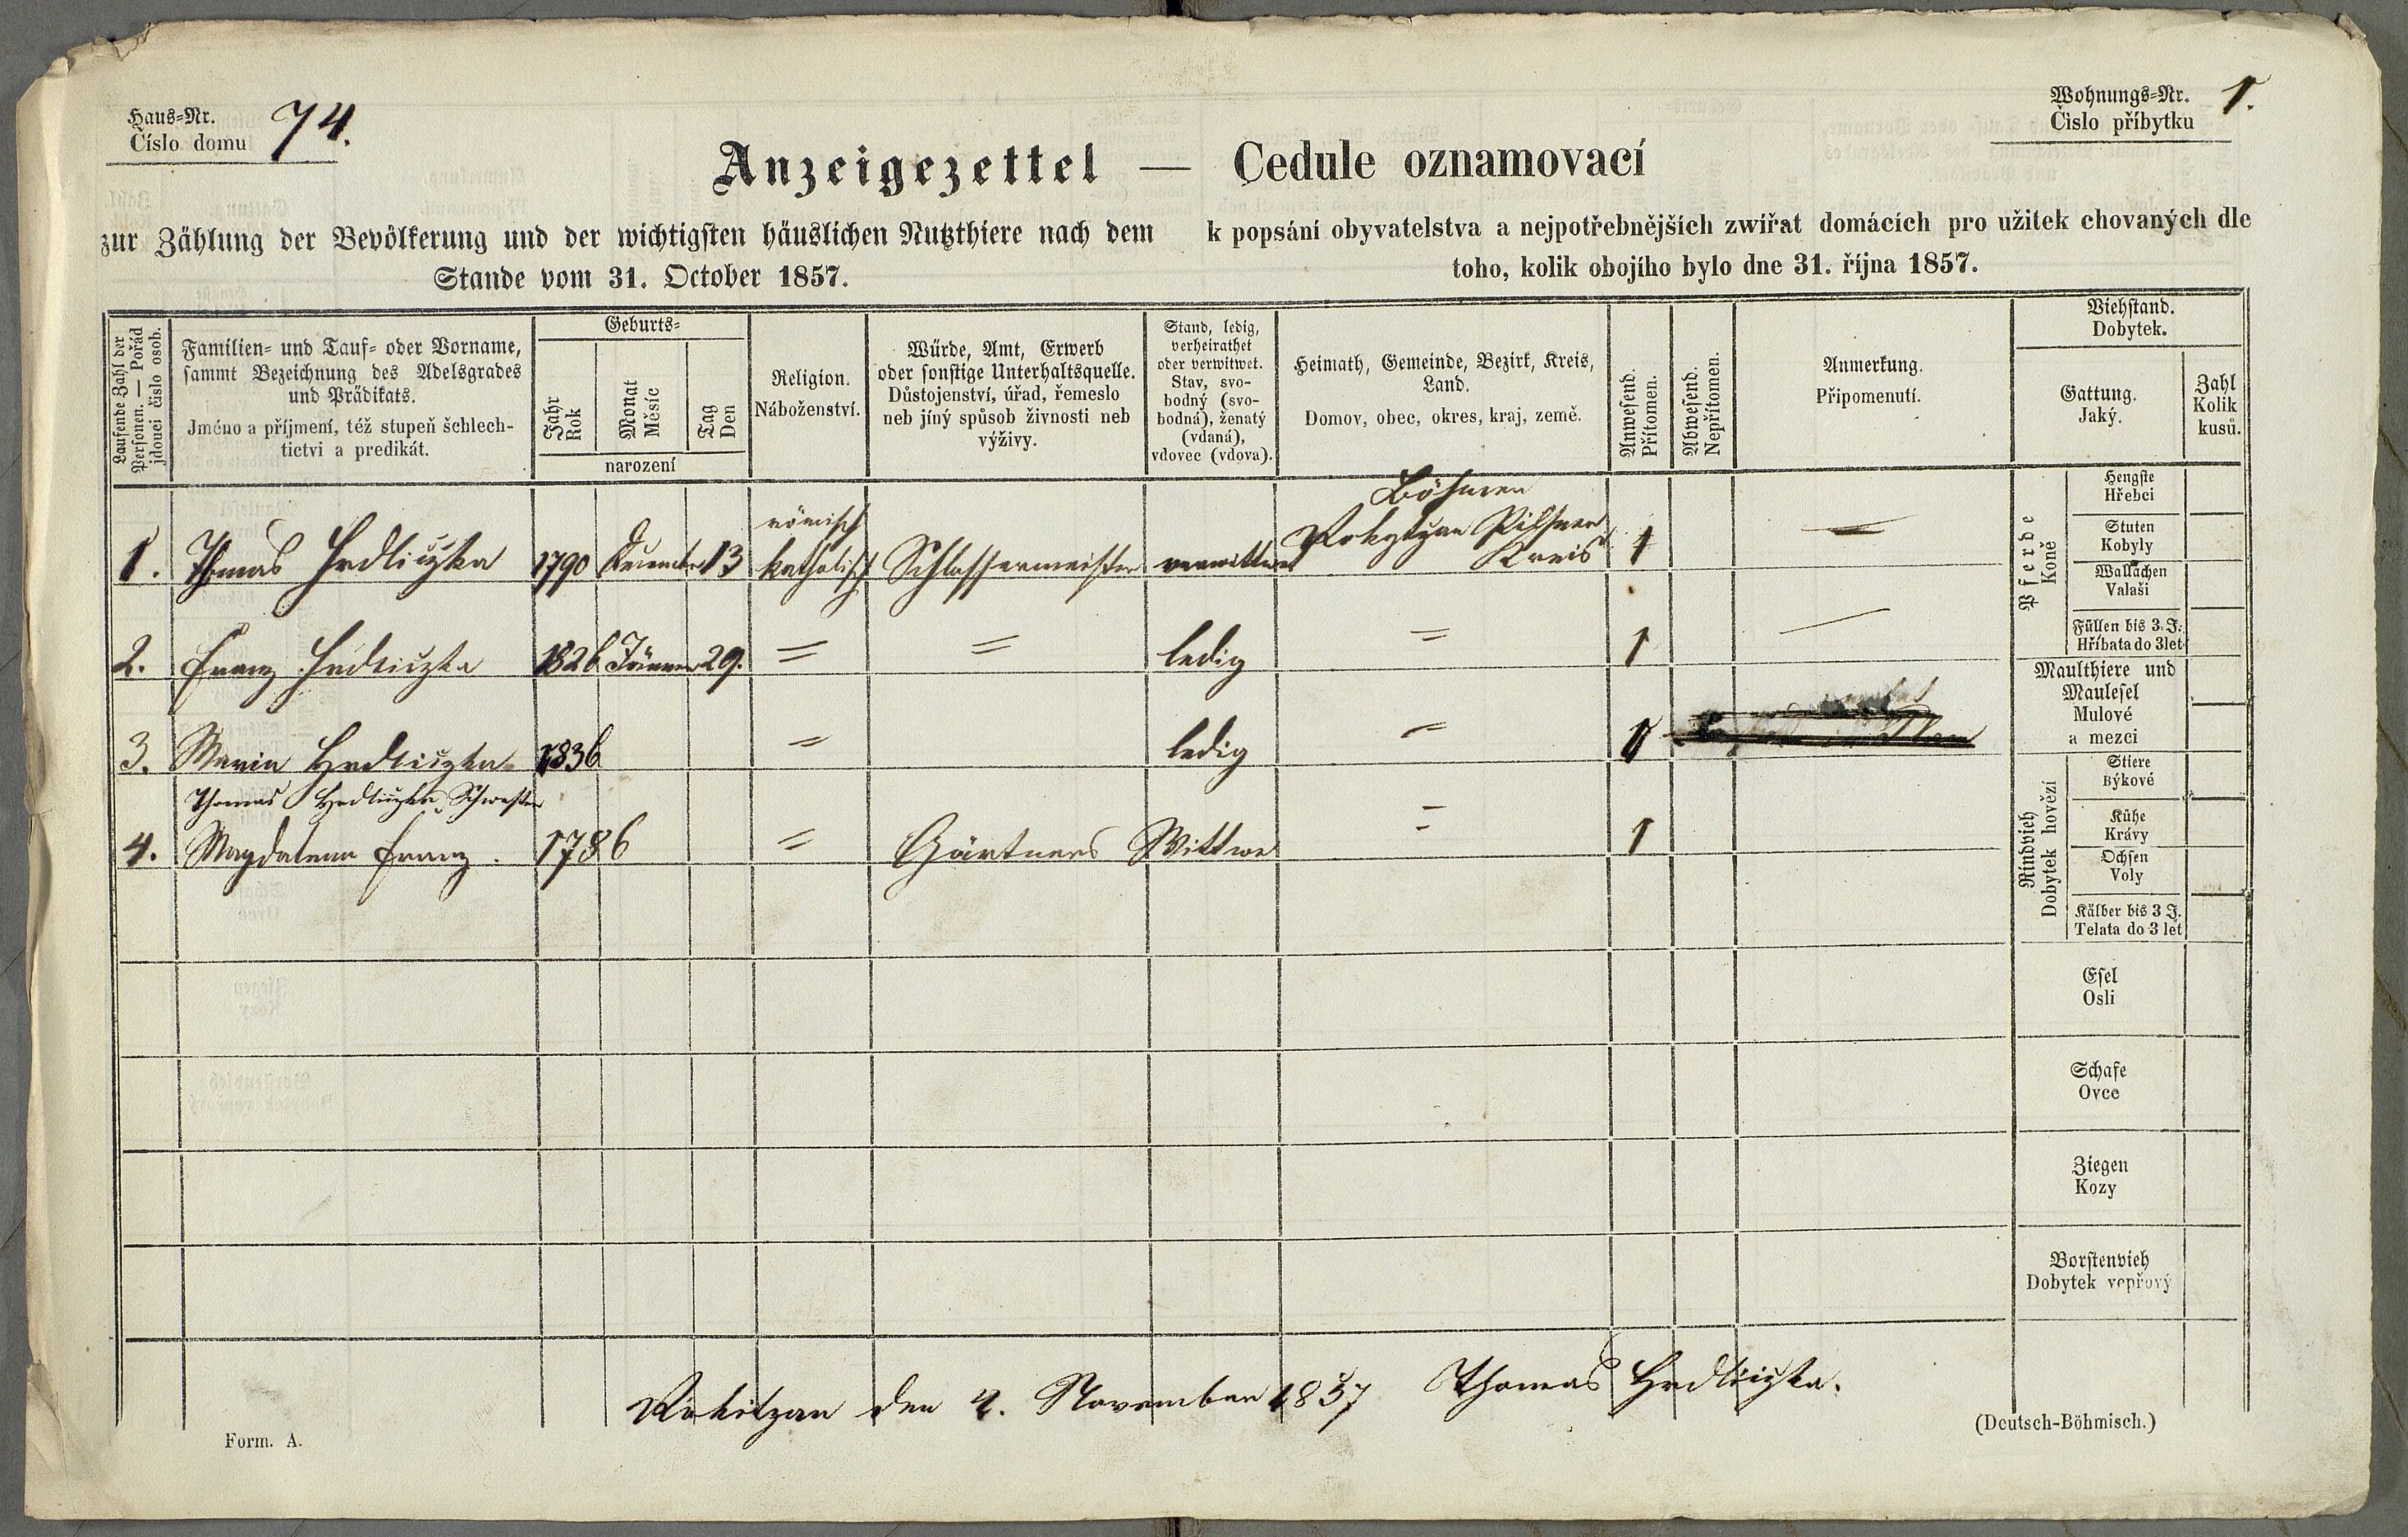 Haus-Nr. 74.
Číslo domu
Wohnungs-Nr. 1.
Čislo příbytku
Anzeigezettel — Cedule oznamovací
zur Zählung der Bevölkerung und der wichtigsten häuslichen Nutzthiere nach dem
Stande vom 31. October 1857.
k popsání obyvatelstva a nejpotřebnějších zwířat domácích pro užitek chovaných dle
toho, kolik obojího bylo dne 31. října 1857.
Laufende Zahl der
Personen. — Pořád
jdoucí číslo osob.
Familien- und Tauf- oder Vorname,
sammt Bezeichnung des Adelsgrades
und Prädikats.
Jméno a příjmení, též stupeň šchlech-
tictvi a predikát.
Geburts-
Jahr
Rok
Monat
Měsíc
Tag
Den
narození
Religion.
Náboženství.
Würde, Amt, Erwerb
oder sonstige Unterhaltsquelle.
Důstojenství, úřad, řemeslo
neb jíný spůsob živnosti neb
výživy.
Stand, ledig,
verheirathet
oder verwitwet.
Stav, svo-
bodný (svo-
bodná), ženatý
(vdaná),
vdovec (vdova).
Heimath, Gemeinde, Bezirk, Kreis,
Land.
Domov, obec, okres, kraj, země.
Anwesend.
Přítomen.
Abwesend.
Nepřítomen.
Anmerkung.
Připomenutí.
Viehstand.
Dobytek.
Gattung.
Jaký.
Zahl
Kolik
kusů.
Böhmen
römisch Rokytzan Pilsner
1. Thomas Hrdliczka 1790 December 13 katholisch Schlossermeister verwittwet Kreis 1 —
2. Franz Hrdliczka 1826 Jänner 29. = = ledig = 1 —
3. Maria Hrdliczka 1836 = ledig = 1
Thomas Hrdliczka Schwester
4. Magdalena Franz. 1786 = Gärtners Wittwe = 1
Pferde
Koně
Hengste
Hřebci
Stuten
Kobyly
Wallachen
Valaši
Füllen bis 3 J.
Hříbata do 3 let
Maulthiere und
Maulesel
Mulové
a mezci
Rindvieh
Dobytek hovězí
Stiere
Býkové
Kühe
Krávy
Ochsen
Voly
Kälber bis 3 J.
Telata do 3 let
Esel
Osli
Schafe
Ovce
Ziegen
Kozy
Borstenvieh
Dobytek vepřový
Rokitzan den 4. November 1857 Thomas Hrdliczka.
Form. A.
(Deutsch-Böhmisch.)